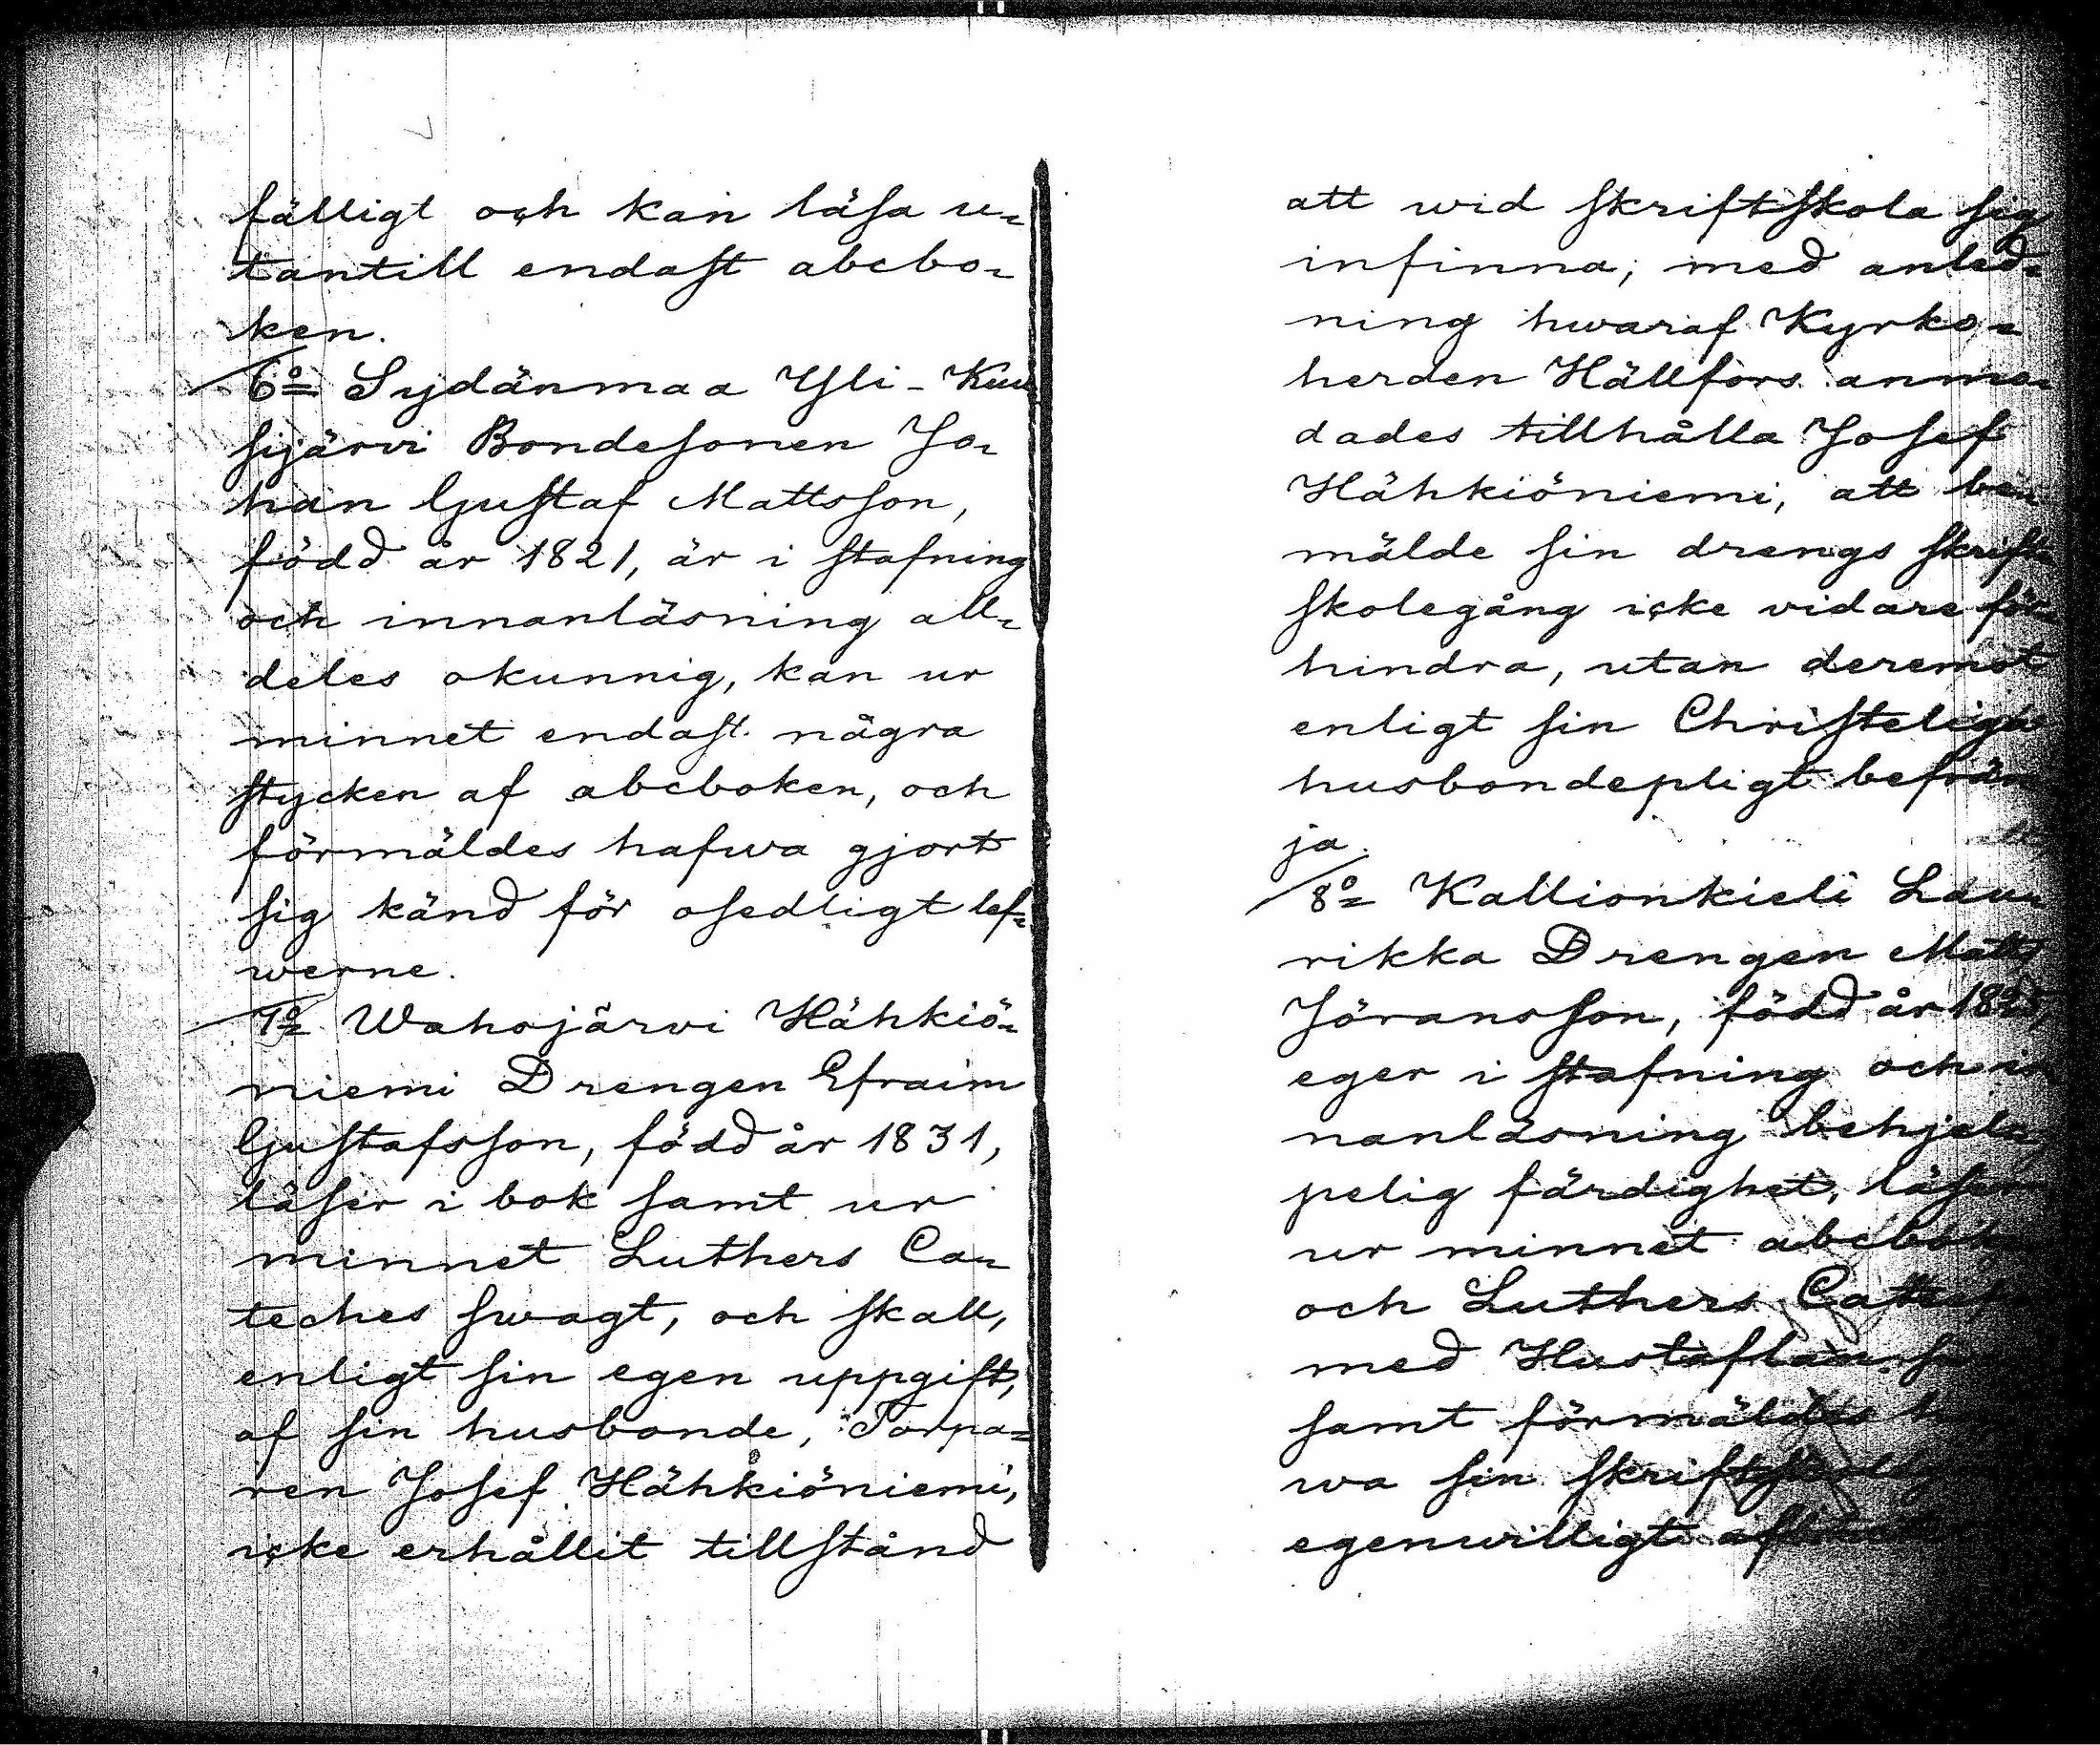 fälligt och kan läsa u-
tantill endast abcbo-
ken.
6o Sydänmaa Yli-Kuu
sijärvi Bondesonen Jo-
han Gustaf Mattsson,
född år 1821, är i stafning
och innanläsning all-
deles okunnig, kan ur
minnet endast några
stycken af abcboken, och
förmäldes hafwa gjort
sig känd för osedligt lef-
werne.
7o Wahojärwi Hähkiö-
niemi Drengen Efraim
Gustafsson, född år 1831,
läser i bok samt ur
minnet Luthers Ca-
teches swagt, och skall,
enligt sin egen uppgift,
af sin husbonde, Torpa-
ren Josef Hähkiöniemi,
icke erhållit tillstånd
att wid skriftskola sig
infinna; med anled-
ning hwaraf Kyrko-
herden Hällfors anmo-
dades tillhålla Josef
Hähkiöniemi, att be-
mälde sin drengs skrift-
skolegång icke vidare för-
hindra, utan deremot
enligt sin Christeliga
husbondepligt befräm
ja.
8o Kallionkieli Lau-
rikka Drengen Matts
Jöransson, född år
eger i stafning och in
nanläsning behjel-
pelig färdighet, läser
ur minnet
och Luthers
med Hustaflan
samt förmäldes
wa sin
egenwilligt